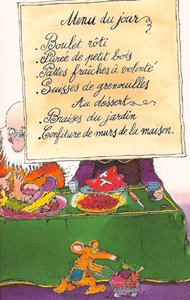 Menu du jour
. Boulet rôti
. Purée de petit bois
. Pattes fraîches à volonté
. Cuisses de grenouilles
Au dessert
. Braises du jardin
. Confiture de murs de la maison.